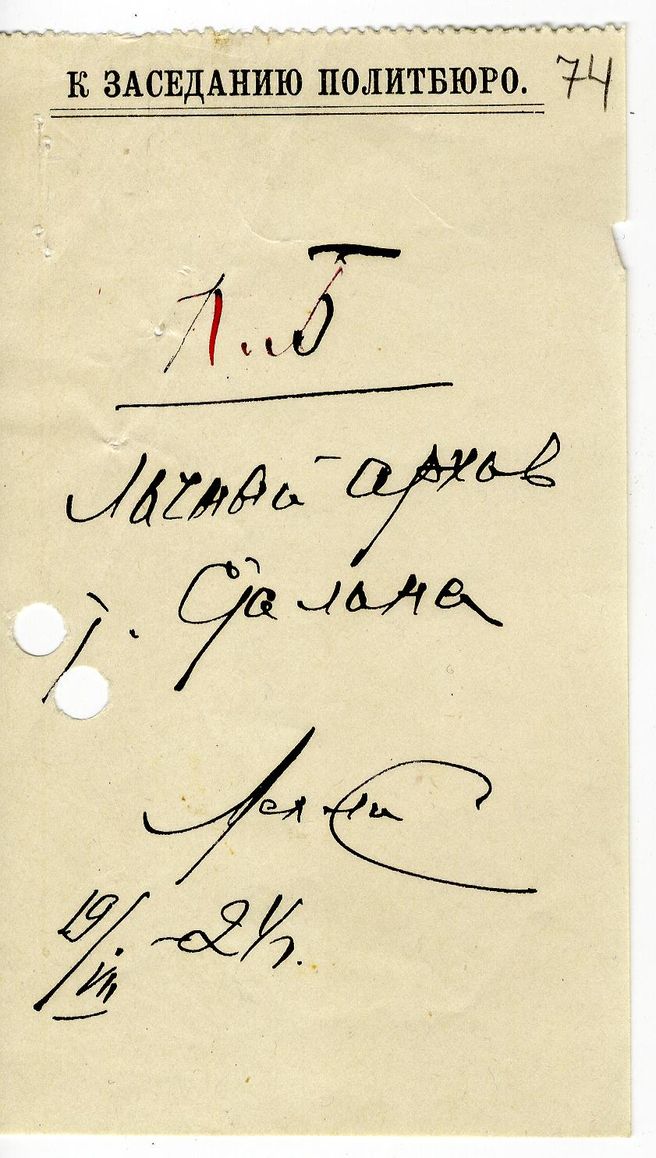 К ЗАСЕДАНИЮ ПОЛИТБЮРО. 74
П.Б
Личный архив
т. Сталина
19/VII -24г.